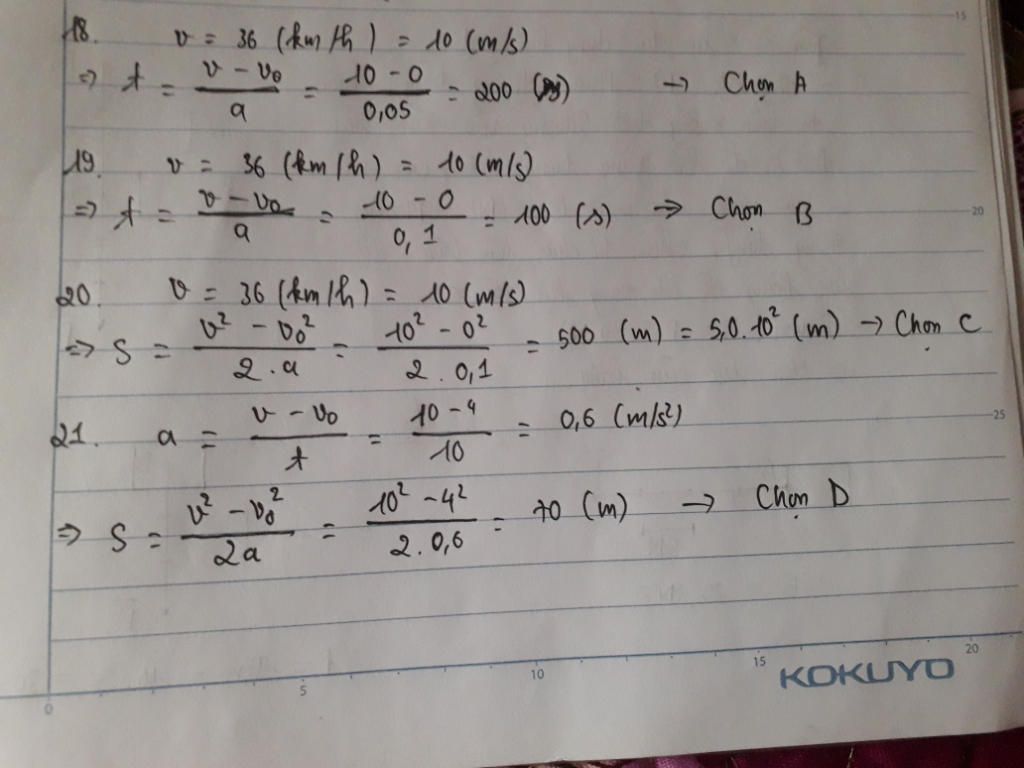 15
18. v = 36 (km/h) = 10 (m/s)
=> t = (v - v₀)/a = (10 - 0)/0,05 = 200 (s) → Chọn A
19. v = 36 (km/h) = 10 (m/s)
=> t = (v - v₀)/a = (10 - 0)/0,1 = 100 (s) → Chọn B
20
20. v = 36 (km/h) = 10 (m/s)
=> S = (v² - v₀²)/(2.a) = (10² - 0²)/(2.0,1) = 500 (m) = 5,0.10² (m) → Chọn C
21. a = (v - v₀)/t = (10 - 4)/10 = 0,6 (m/s²)
25
=> S = (v² - v₀²)/(2a) = (10² - 4²)/(2.0,6) = 70 (m) → Chọn D
0 5 10 15 20
KOKUYO